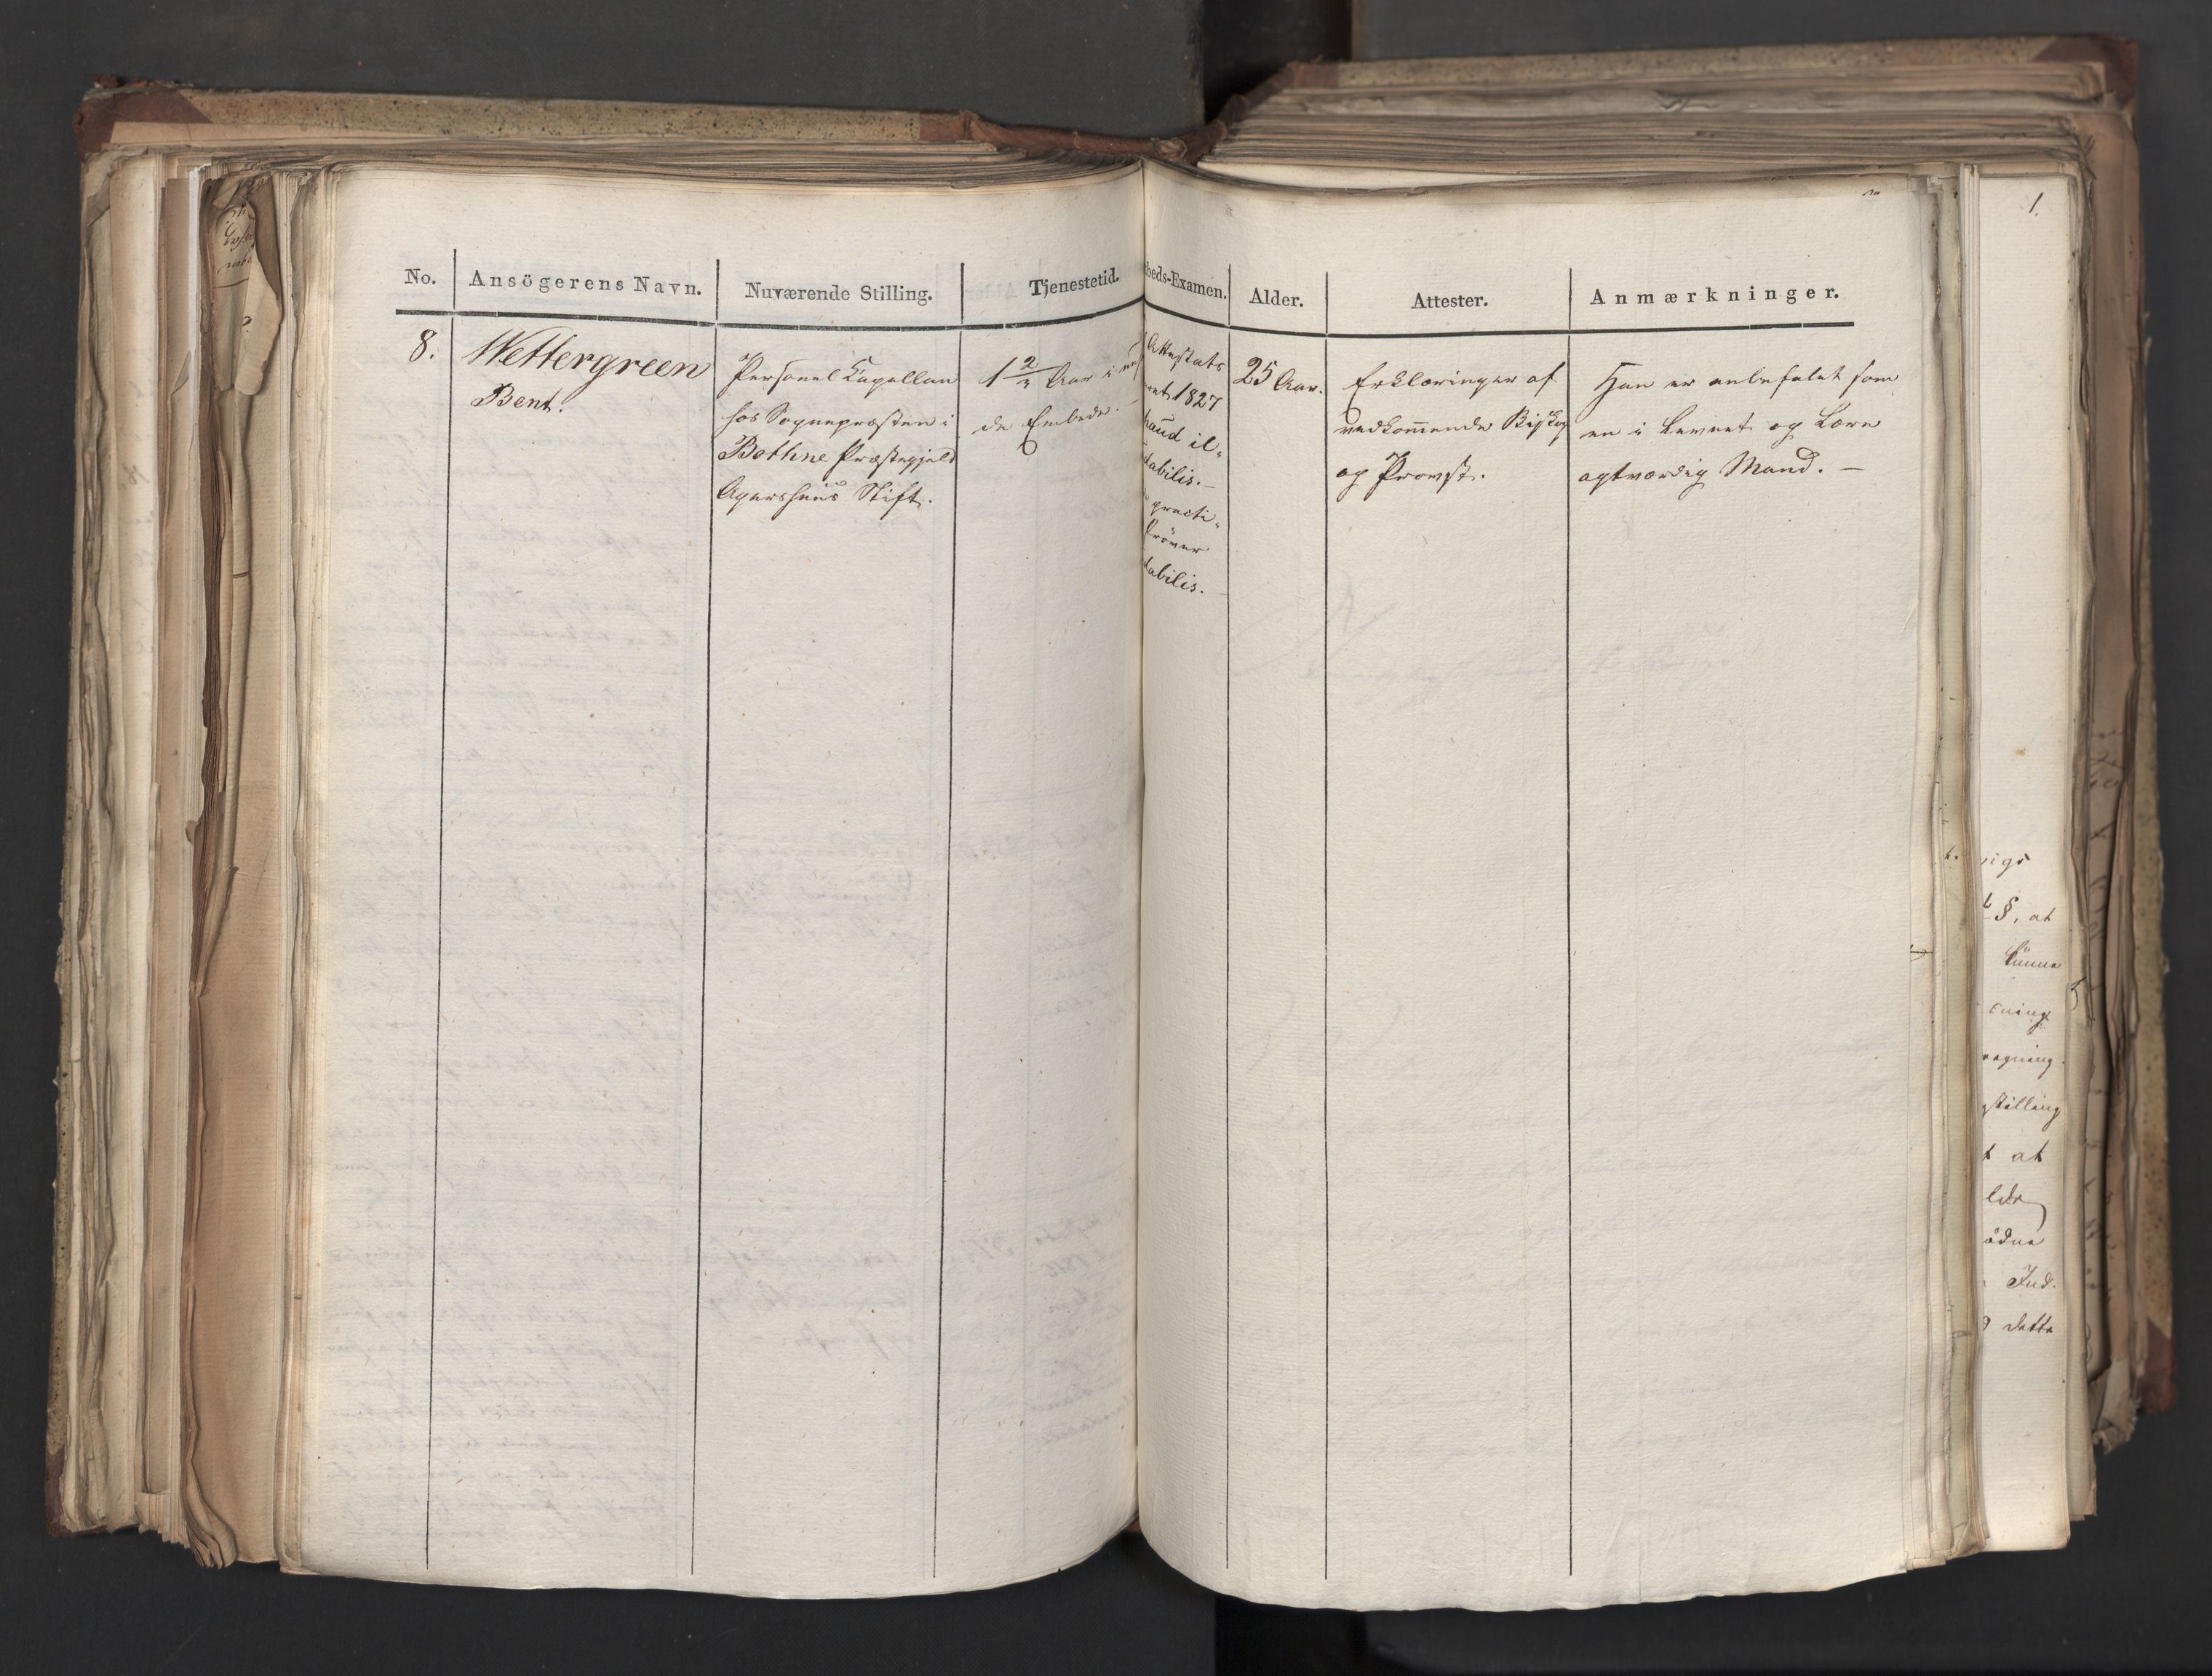 No.
Ansögerens Navn.
Nuværende Stilling.
Tjenestetid.
beds-Examen.
Alder.
Attester.
Anmærkninger.
8.
Wettergreen
Bent.
Personel Kapellan
hos Sognepræsten i
Bothne Præstegjeld
Agershuus Stift.
1 2/3 Aar i
de Embede.
Attestats
1827
haud il-
dabilis.—
practi-
Prøver
dabilis.
25 Aar.
Erklæringer af
vedkom̄ende Biskop
og Provst.
Han er anbefalet som
en i Levnet og Lære
agtværdig Mand. —
1.
§, at
kunne
stilling
t at
Ind-
dette